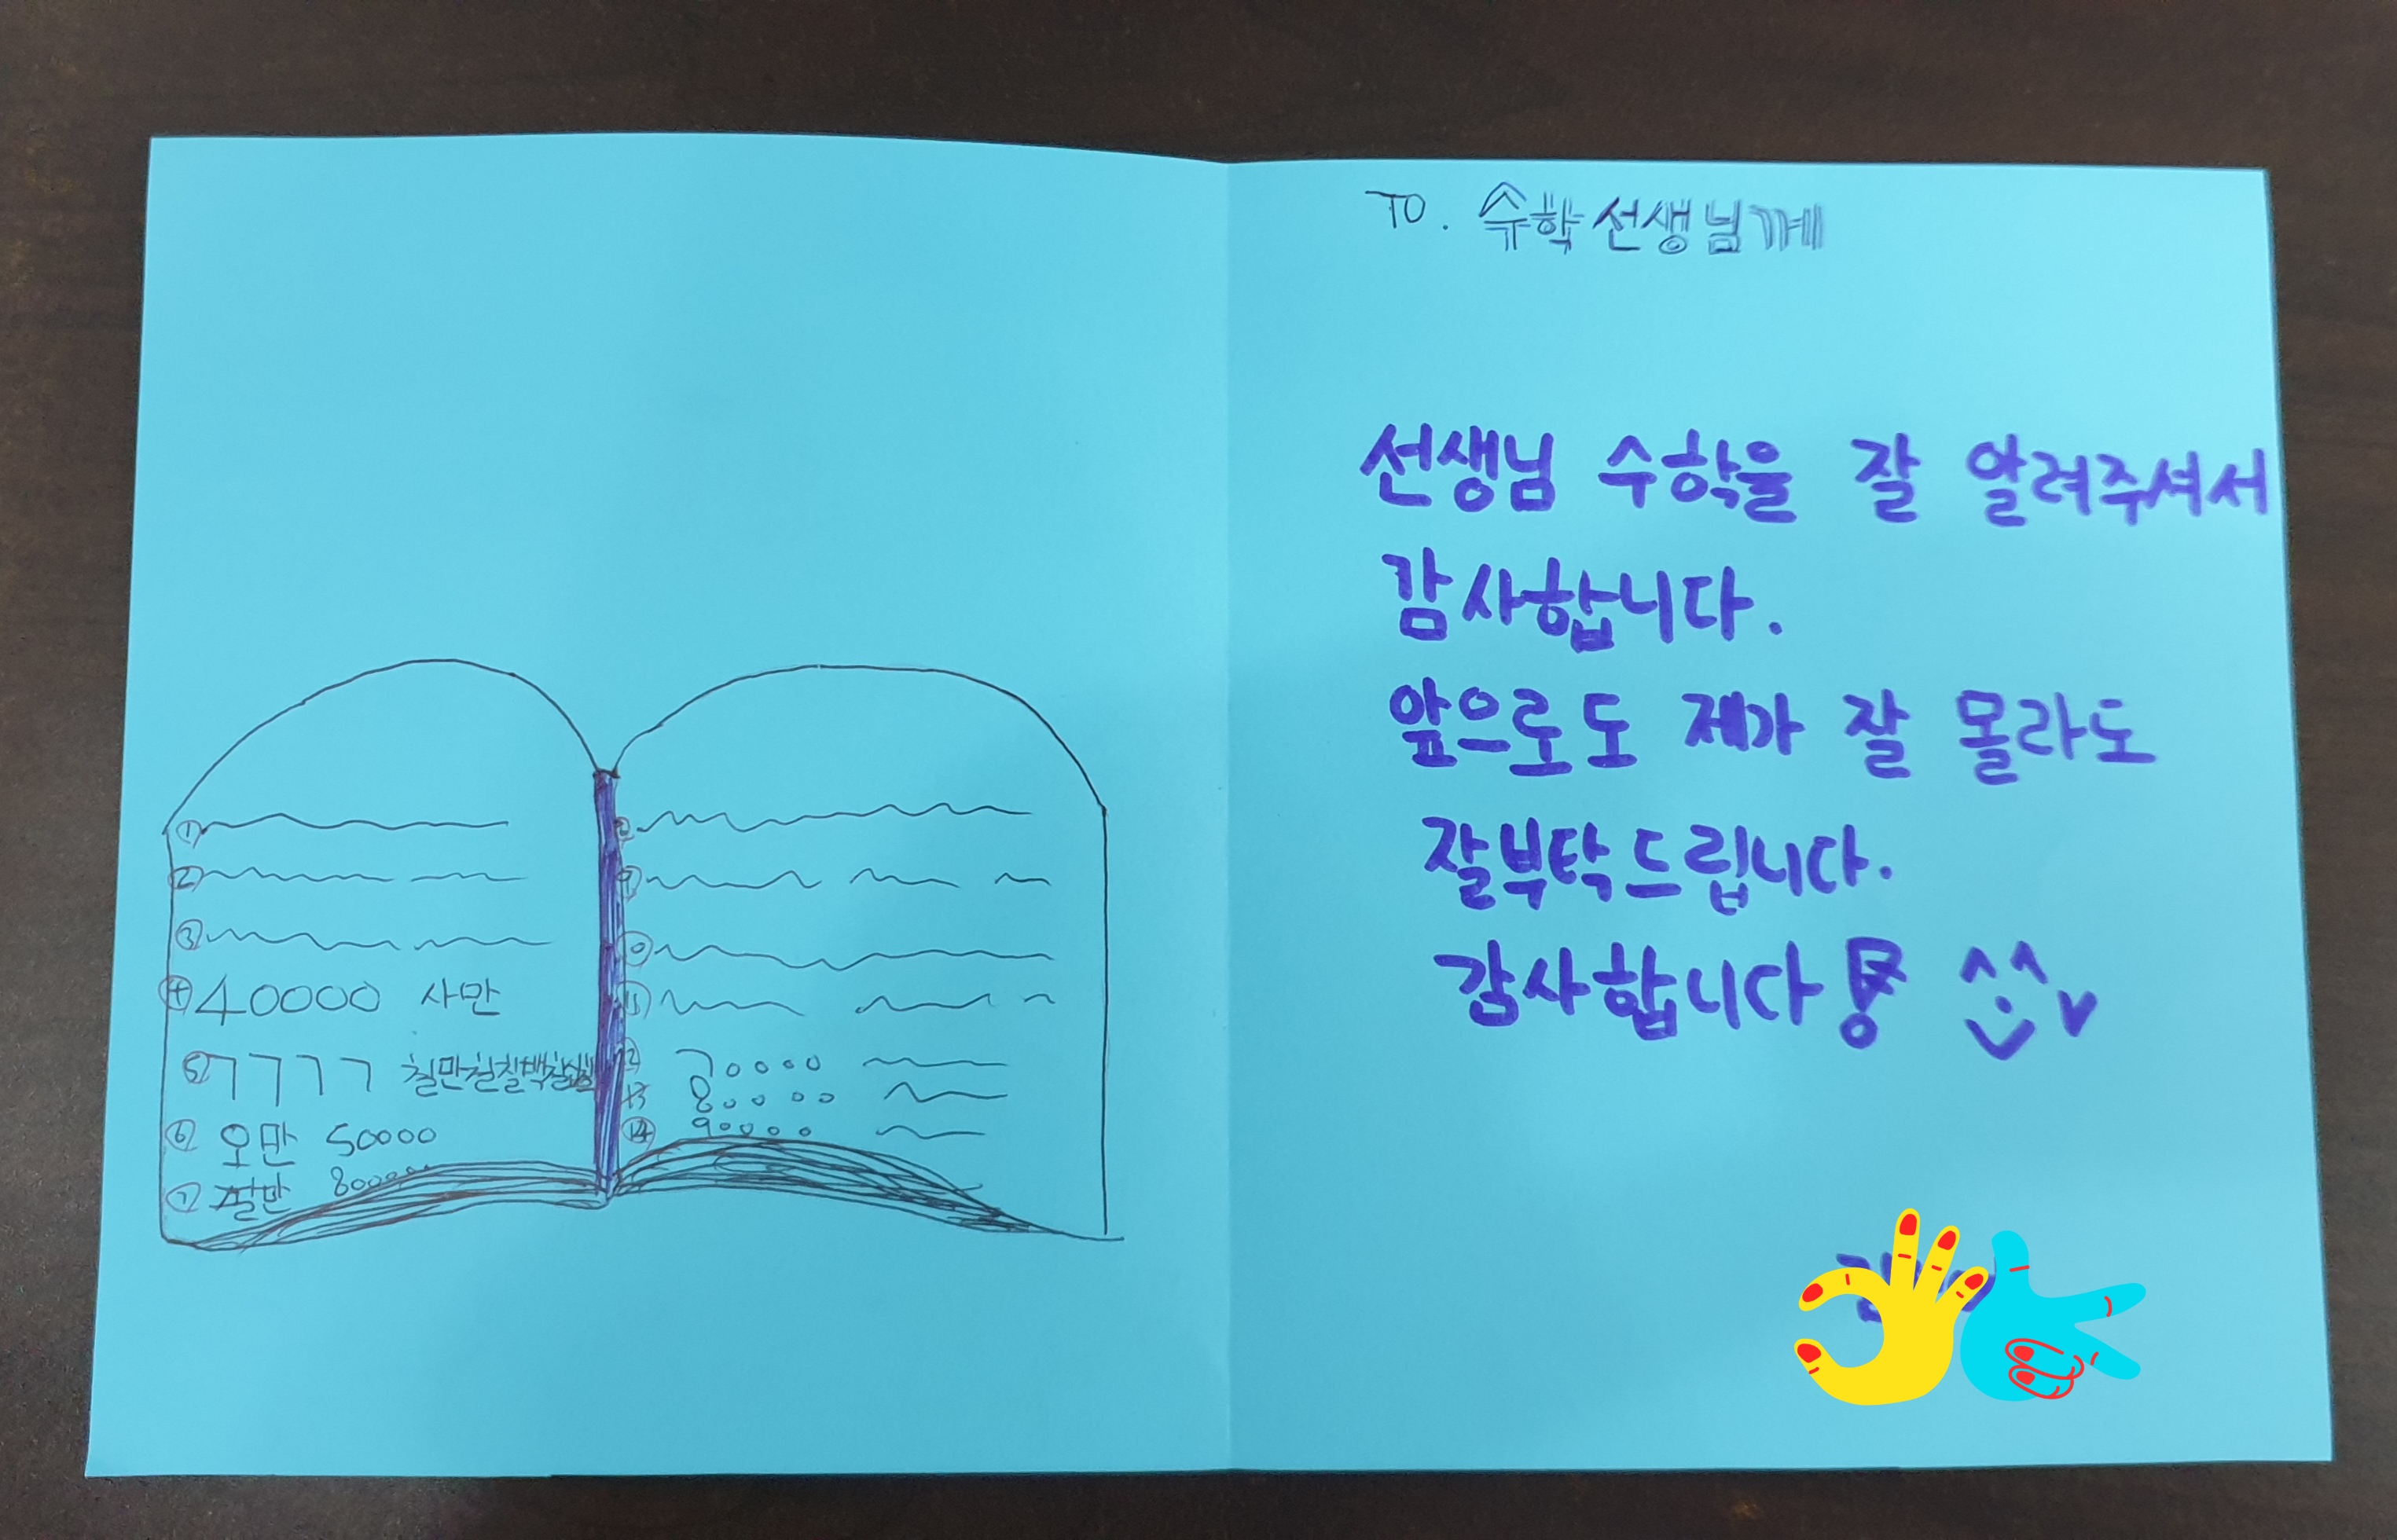 ① 
② 
③ 
④ 40000 사만
⑤ 7777
⑥ 오만 50000
⑦
⑨
⑩
⑪
⑫ 70000
13 80000
⑭ 90000
TO. 수학선생님께
선생님 수학을 잘 알려주셔서
감사합니다.
앞으로도 제가 잘 몰라도
잘부탁드립니다.
감사합니다!